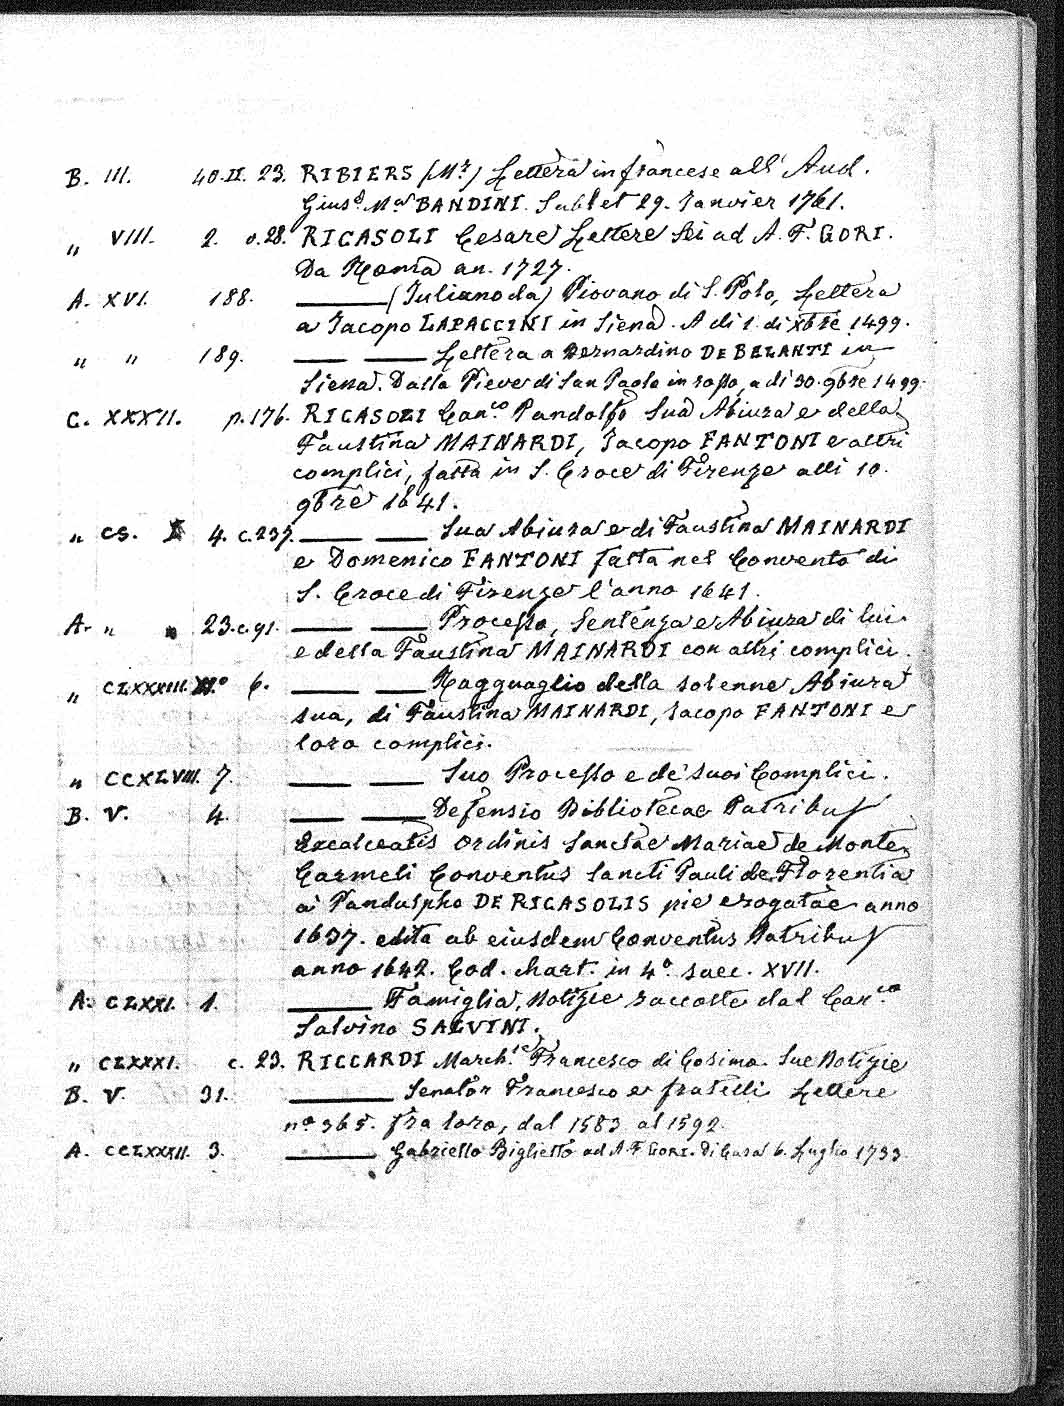 B. III. 40.II. 23. RIBIERS (Mr) Lettera in francese all' Aud.
Giusე Mar BANDINI. Sublet 29. Janvier 1761.
„ VIII. 2. c.28. RICASOLI Cesare Lettere Sei ad A. F. GORI.
Da Roma an. 1727.
A. XVI. 188. ——— (Juliano da) Piovano di S. Polo, Lettera
a Jacopo LAPACCINI in Siena. A di 1. di Xbre 1499.
„ „ 189. —— —— Lettera a Bernardino DE BELANTI in
Siena. Dalla Pieve di San Paolo in rosso, a di 30. 9bre 1499.
C. XXXII. p.176. RICASOLI Can.co Pandolfo Sua Abiura e della
Faustina MAINARDI, Jacopo FANTONI e altri
complici, fatta in S. Croce di Firenze alli 10.
9bre 1641.
„ CS. 4. c.237. —— —— Sua Abiura e di Faustina MAINARDI
e Domenico FANTONI fatta nel Convento di
S. Croce di Firenze l'anno 1641.
A. „ „ 23.c.91. —— —— Processo, Sentenza e Abiura di lui
e della Faustina MAINARDI con altri complici.
„ CLXXXIII. 6. —— —— Ragguaglio della solenne Abiura
sua, di Faustina MAINARDI, Jacopo FANTONI e
loro complici.
„ CCXLVIII. 7. —— —— Suo Processo e de' suoi Complici.
B. V. 4. —— —— Defensio Bibliotecae Patribus
Excalceatis Ordinis Sanctae Mariae de Monte
Carmeli Conventus Sancti Pauli de Florentia
a Pandulpho DE RICASOLIS pie erogatae anno
1637. edita ab eiusdem Conventus Patribus
anno 1642. Cod. chart. in 4º saec. XVII.
A. CLXXI. 1. ——— Famiglia, Notizie raccolte dal Can.co
Salvino SALVINI.
„ CLXXXI. c. 23. RICCARDI March.se Francesco di Cosimo. Sue Notizie
B. V. 31. ——— Senator Francesco e fratelli Lettere
nº 365. fra loro, dal 1583 al 1592.
A. CCLXXXII. 3. ——— Gabriello Biglietto ad A. F. GORI. Di Casa 6. Luglio 1733.